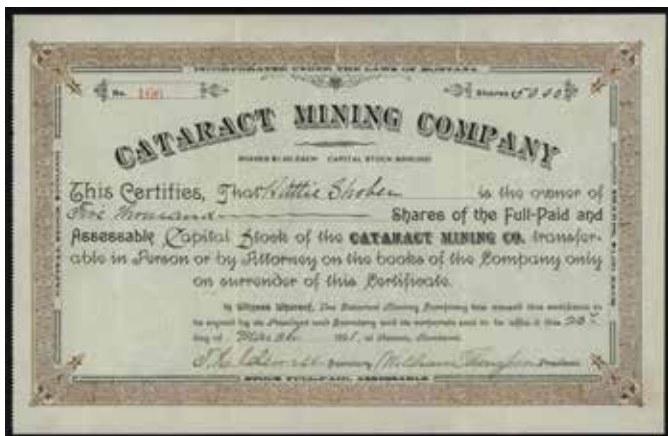 INCORPORATED UNDER THE LAWS OF MONTANA
No. 166
Shares 5000
CATARACT MINING COMPANY
SHARES $1.00 EACH CAPITAL STOCK
This Certifies, That Kittie Shober is the owner of
Five Thousand Shares of the Full-Paid and
Assessable Capital Stock of the CATARACT MINING CO. transfer-
able in Person or by Attorney on the books of the Company only
on surrender of this Certificate.
In Witness Whereof, The Cataract Mining Company has caused this certificate to
be signed by its President and Secretary and its corporate seal to be affixed this
day of March at Helena, Montana.
Secretary William Thompson President
STOCK FULL-PAID, ASSESSABLE